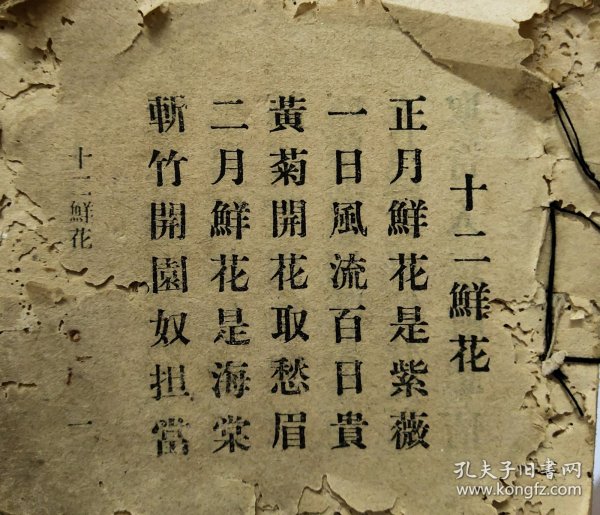 十二鮮花
正月鮮花是紫薇
一日風流百日貴
黃菊開花取愁眉
二月鮮花是海棠
斬竹開園奴担當
十二鮮花
一
孔夫子旧书网
www.kongfz.com